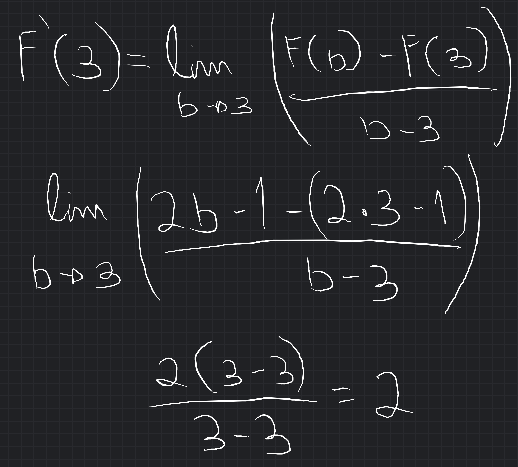 F'(3) = lim b→3 ((F(b) - F(3)) / (b-3))
lim b→3 ((2b-1-(2·3-1)) / (b-3))
2(3-3) / (3-3) = 2